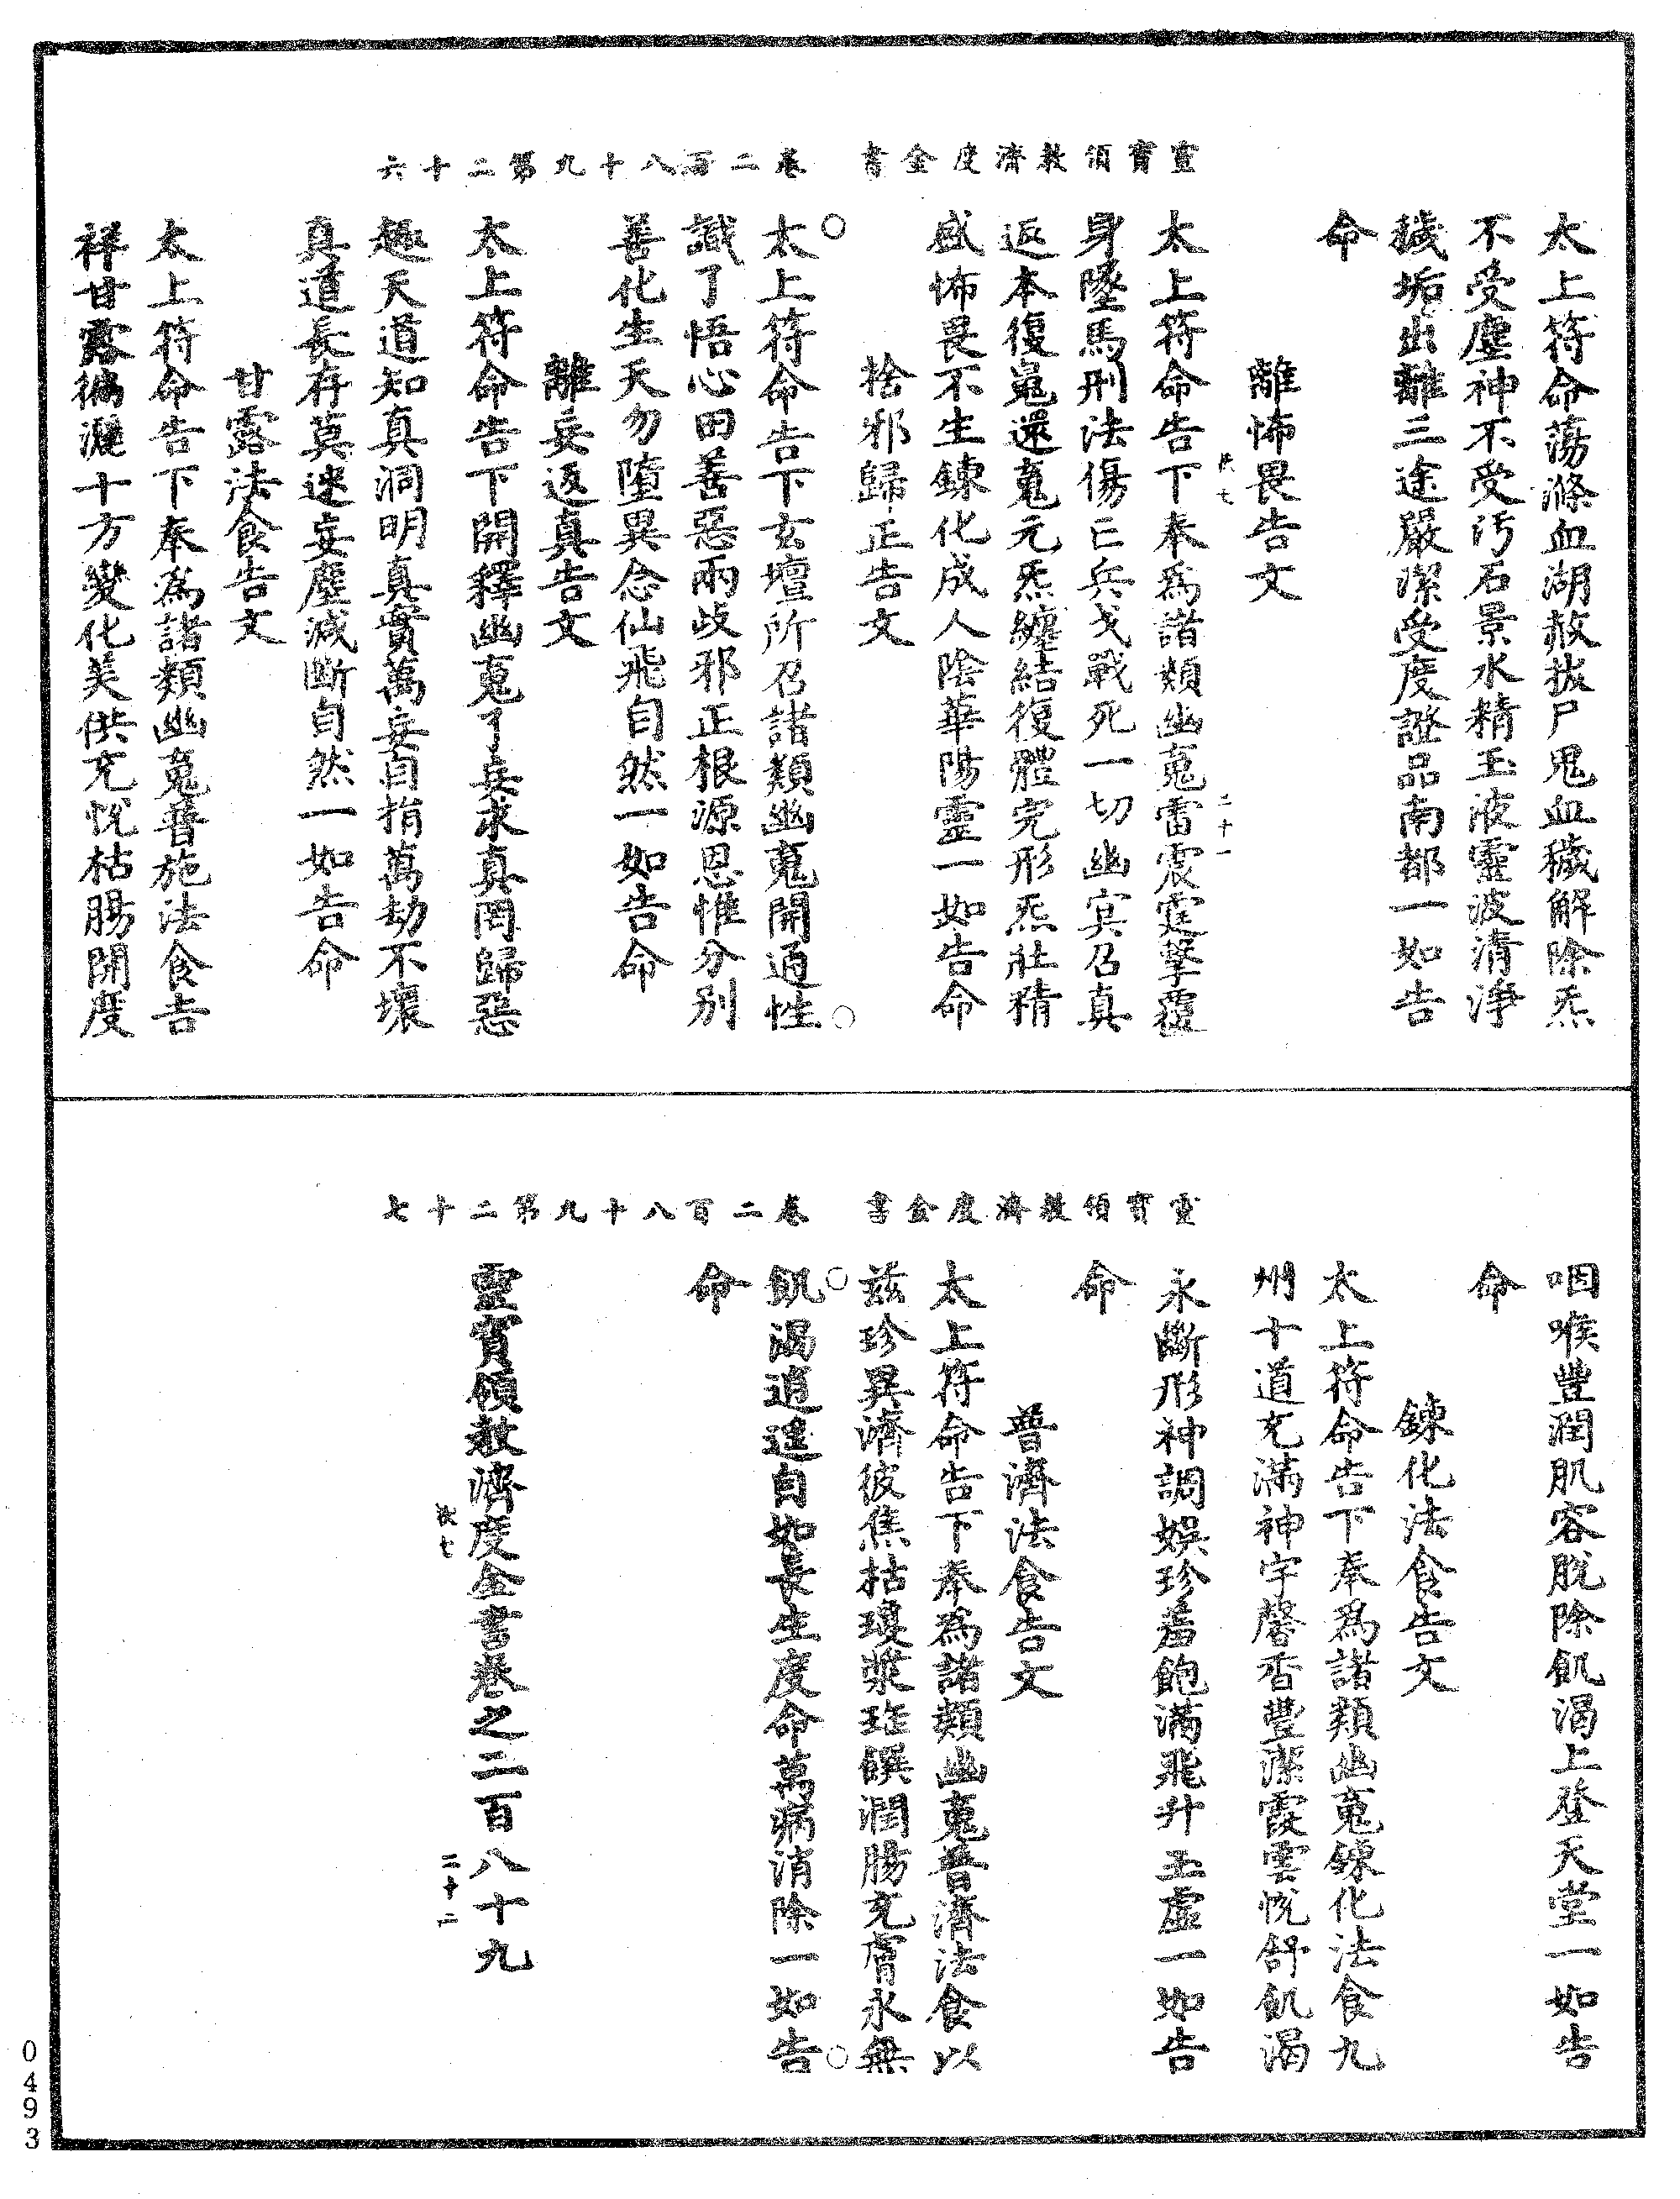 靈寶領教濟度金書　卷二百八十九第二十六
太上符命蕩滌血湖赦拔尸鬼血穢解除炁
不受塵神不受污石景水精玉液靈波清淨
穢垢出離三途嚴潔受度證品南都一如告
命
離怖畏告文
太上符命告下奉為諸類幽䰟雷震霆擊覆
二十一
身墜馬刑法傷亡兵戈戰死一切幽冥召真
返本復䰟還䰟元炁纏結復體完形炁壯精
盛怖畏不生鍊化成人陰華陽靈一如告命
捨邪歸正告文
太上符命告下玄壇所召諸類幽䰟開通性
識了悟心田善惡兩岐邪正根源思惟分別
善化生天勿墮異念仙飛自然一如告命
離妄返真告文
太上符命告下開釋幽䰟了妄求真罔歸惡
趣天道知真洞明真實萬妄自捐萬劫不壞
真道長存莫迷妄塵滅斷自然一如告命
甘露法食告文
太上符命告下奉為諸類幽䰟普施法食吉
祥甘露徧灑十方變化美供充悅枯腸開度
靈寶領教濟度金書　卷二百八十九第二十七
咽喉豐潤肌容脫除飢渴上登天堂一如告
命
鍊化法食告文
太上符命告下奉為諸類幽䰟鍊化法食九
州十道充滿神宇馨香豐潔霞雲悅舒飢渴
永斷形神調娛珍羞飽滿飛升玉虛一如告
命
普濟法食告文
太上符命告下奉為諸類幽䰟普濟法食以
茲珍異濟彼焦枯瓊漿珍饌潤腸充膚永無
飢渴逍遙自如長生度命萬病消除一如告
命
靈寶領教濟度金書卷之二百八十九
二十二
0493